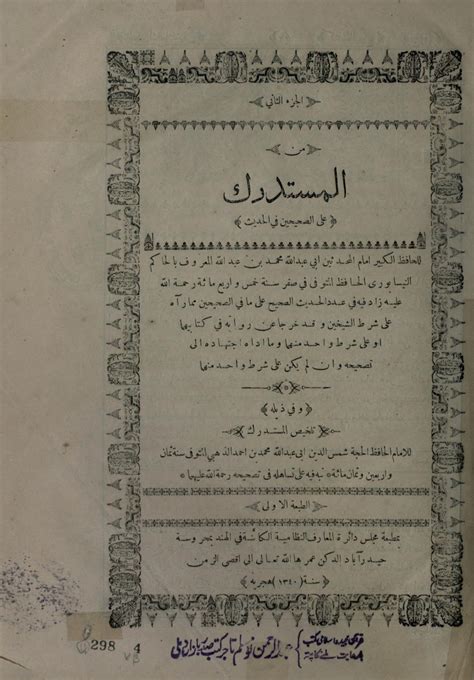 الجزء الثاني
من
المستدرك
على الصحيحين في الحديث
للحافظ الكبير امام المحدثين ابي عبدالله محمد بن عبدالله المعروف بالحاكم
النيسابوري الحافظ المتوفى في صفر سنة خمس واربع مائة رحمة الله
عليه زاد فيه في عدد الحديث الصحيح على ما في الصحيحين مما رآه
على شرط الشيخين وقد خرجا عن رواته في كتابيهما
او على شرط واحد منهما وما اداه اجتهاده الى
تصحيحه وان لم يكن على شرط واحد منهما
وفي ذيله
تلخيص المستدرك
للامام الحافظ الحجة شمس الدين ابي عبدالله محمد بن احمد الذهبي المتوفى سنة ثمان
واربعين وثمان مائة نبه فيه على تساهله في تصحيحه رحمة الله عليهما
الطبعة الاولى
بمطبعة مجلس دائرة المعارف النظامية الكائنة في الهند بمحروسة
حيدرآباد الدكن عمرها الله تعالى الى اقصى الزمن
سنة (١٣٤٠) هجرية
298 4